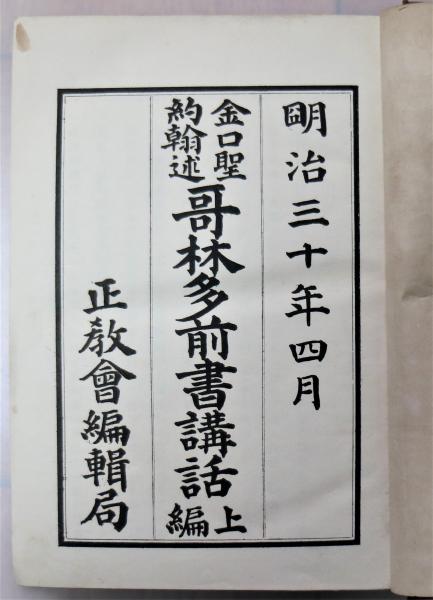 明治三十年四月
金口聖約翰述 哥林多前書講話 上編
正敎會編輯局